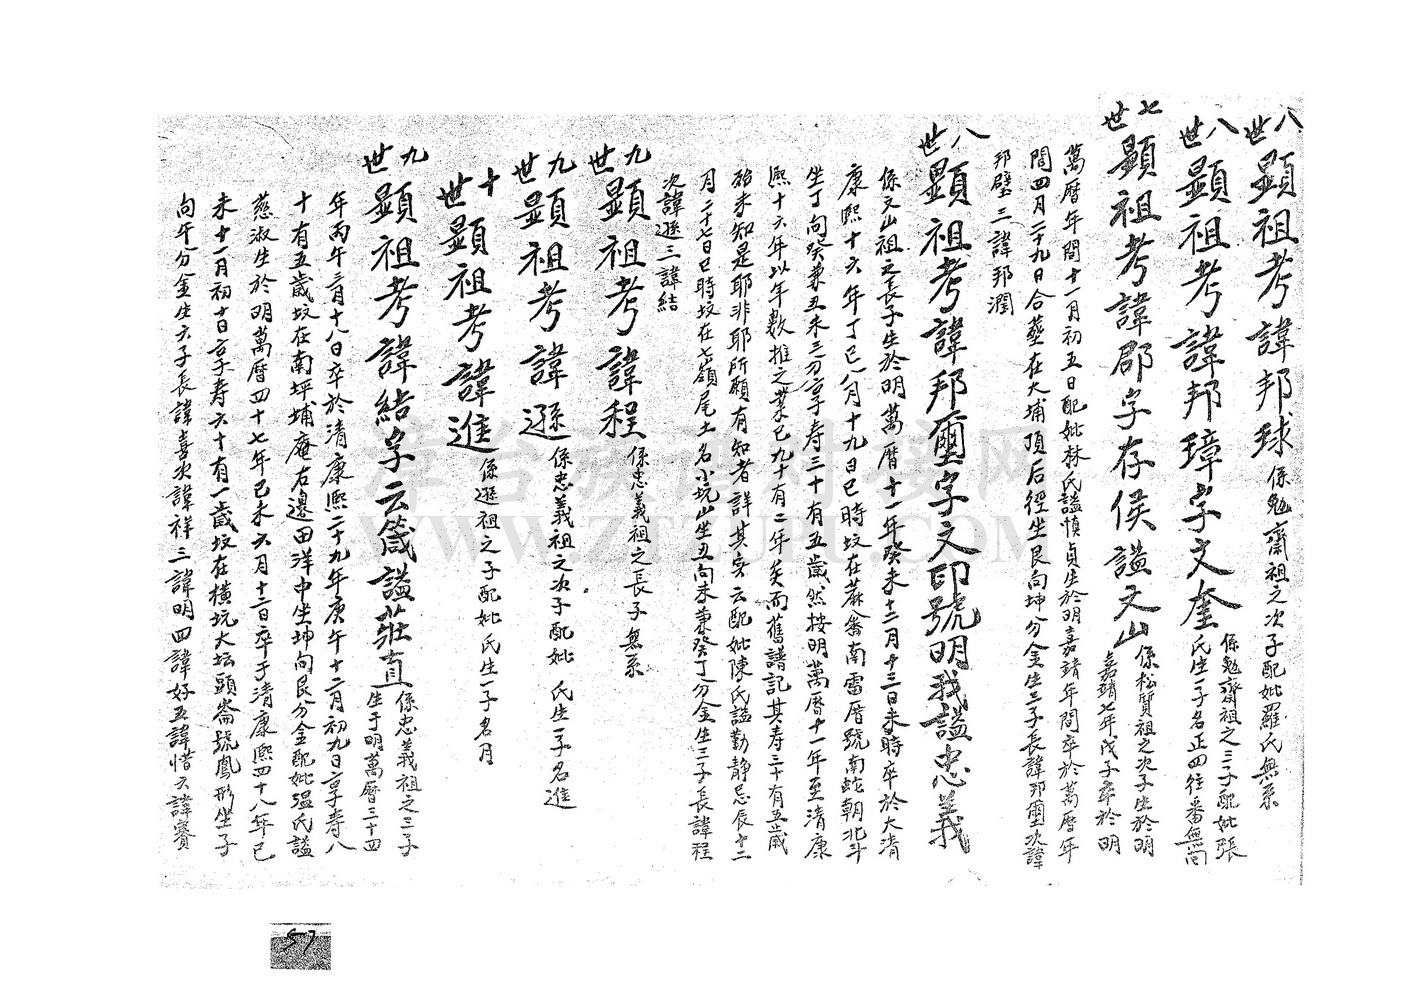 八世顯祖考諱邦球係勉齋祖之次子配妣羅氏無系
八世顯祖考諱邦璋字文奎係勉齋祖之三子配妣張
氏生一子名正四往番無回
七世顯祖考諱郡字存侯諡文山係松質祖之次子生於明
嘉靖七年戊子卒於明
萬曆年間十一月初五日配妣林氏諡慎貞生於明嘉靖年間卒於萬曆年
間四月二十九日合葬在大埔頂后徑坐艮向坤分金生三子長諱邦璽次諱
邦璧三諱邦潤
八世顯祖考諱邦璽字文印號明我諡忠義
係文山祖之長子生於明萬曆十一年癸未十二月十三日未時卒於大清
康熙十六年丁巳八月十九日巳時坟在蔴畬南雷厝號南蛇朝北斗
坐丁向癸兼丑未三分享寿三十有五歲然按明萬曆十一年至清康
熙十六年以年數推之業已九十有二年矣而舊譜記其寿三十有五歲
殆未知是耶非耶所願有知者詳其实云配妣陳氏諡勤静忌辰十二
月二十七日巳時坟在七嶺尾土名小坑山坐丑向未兼癸丁分金生三子長諱程
次諱遜三諱結
九世顯祖考諱程係忠義祖之長子無系
九世顯祖考諱遜係忠義祖之次子配妣 氏生一子名進
十世顯祖考諱進係遜祖之子配妣氏生一子名月
九世顯祖考諱結字云箴諡莊直係忠義祖之三子
生于明萬曆三十四
年丙午三月十八日卒於清康熙二十九年庚午十二月初九日享寿八
十有五歲坟在南坪埔庵右邊田洋中坐坤向艮分金配妣温氏諡
慈淑生於明萬曆四十七年己未六月十二日卒于清康熙四十八年己
未十一月初十日享寿六十有一歲坟在橫坑大坛頭崙號鳳形坐子
向午分金生六子長諱喜次諱祥三諱明四諱好五諱惜六諱賽
漳台族谱对接网
WWW.ZTZUPU.COM
57